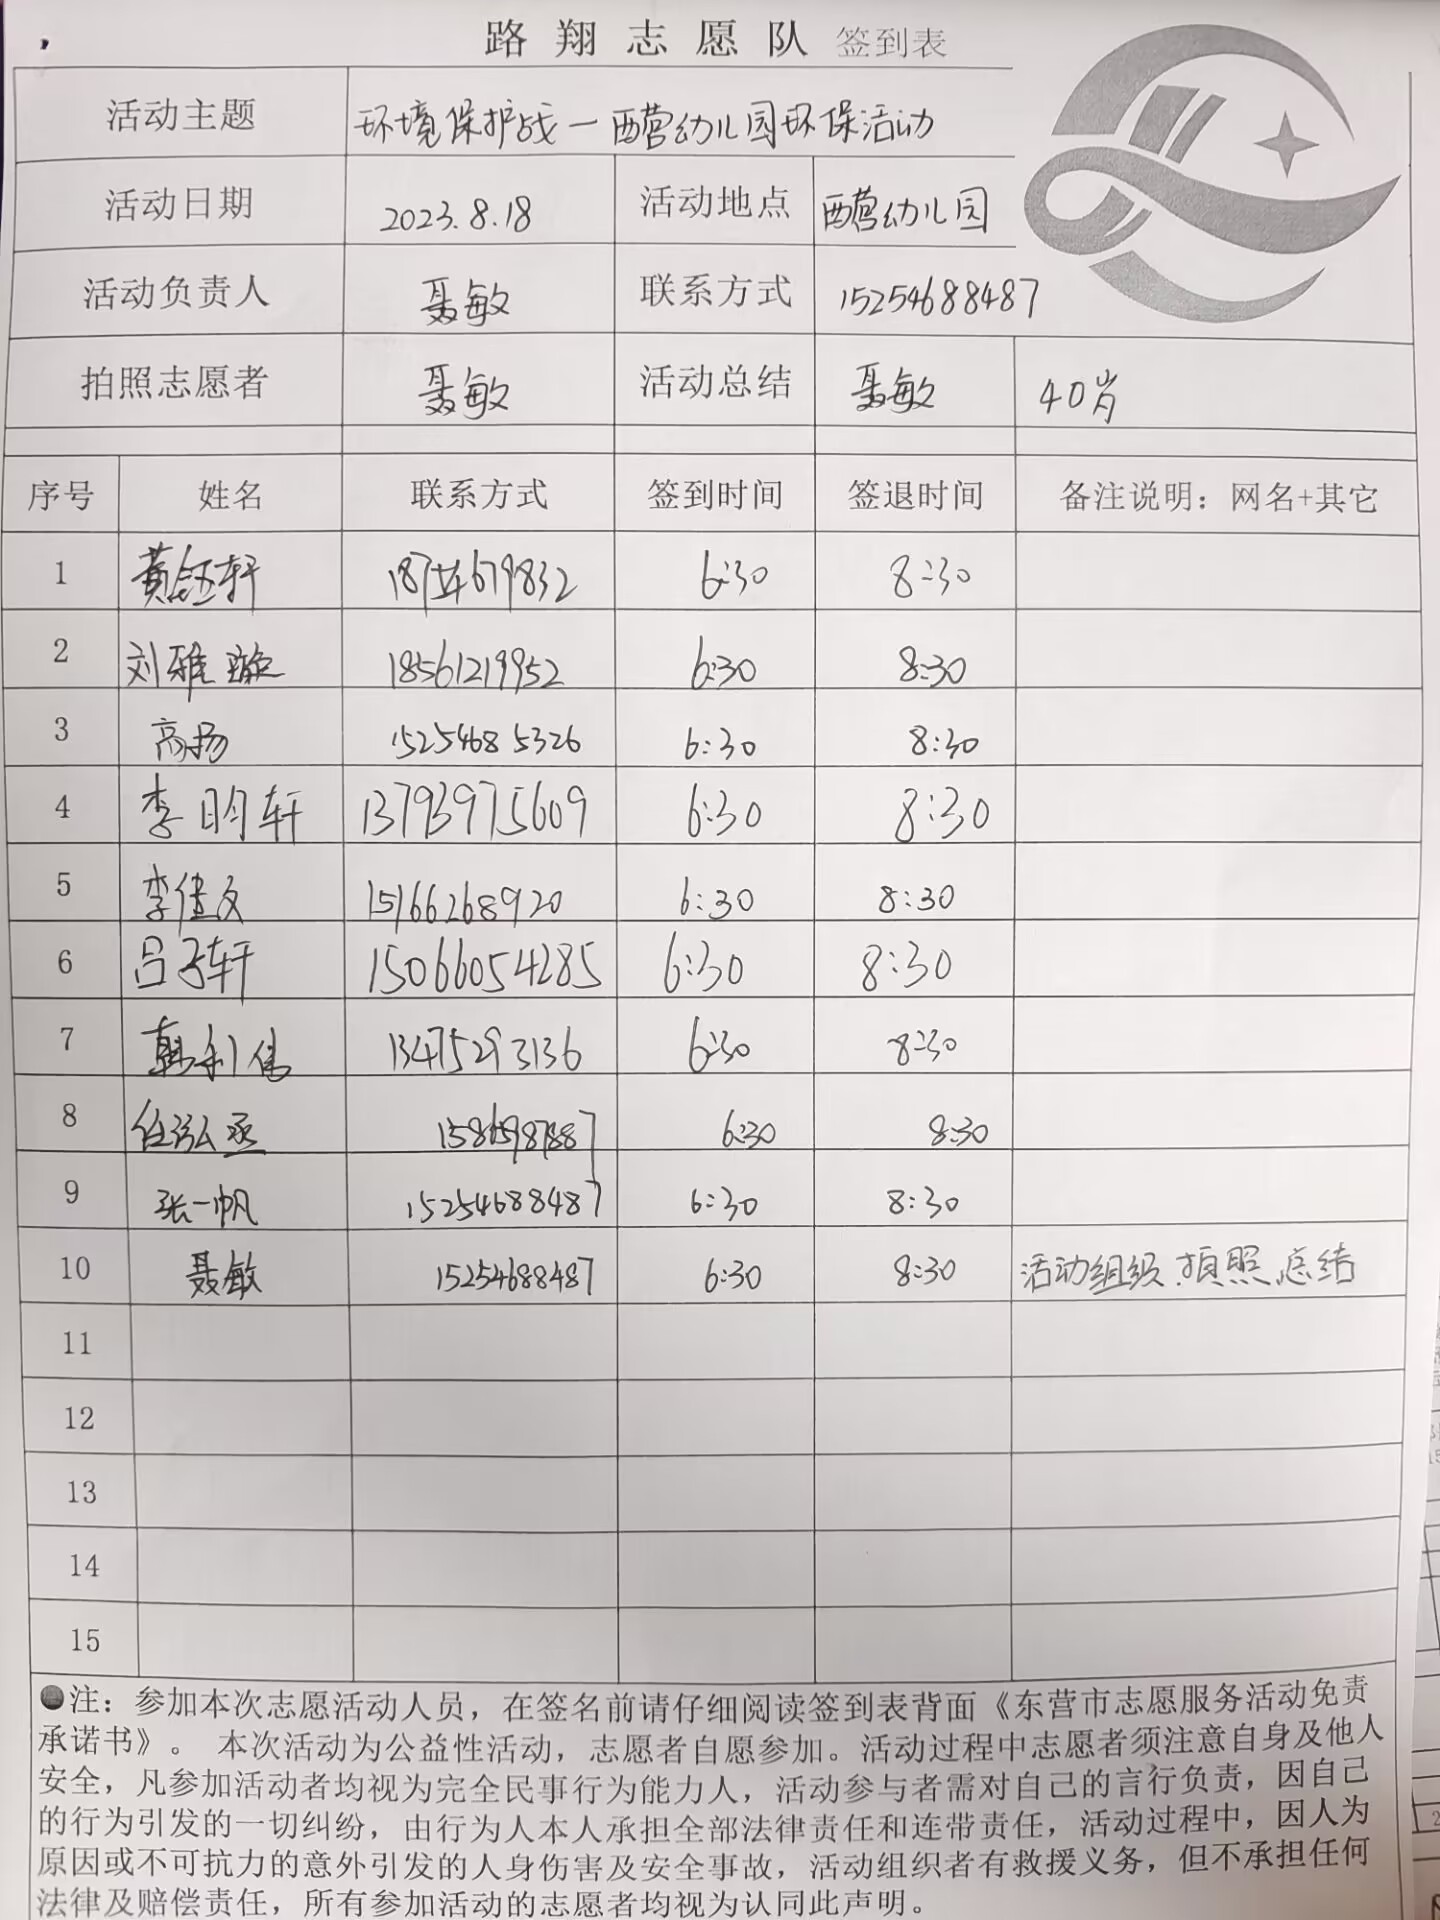 路翔志愿队 签到表
活动主题 环境保护战一西营幼儿园环保活动
活动日期 2023.8.18 活动地点 西营幼儿园
活动负责人 聂敏 联系方式 15254688487
拍照志愿者 聂敏 活动总结 聂敏 40岁
序号 姓名 联系方式 签到时间 签退时间 备注说明：网名+其它
1 黄钰轩 6:30 8:30
2 刘雅璇 18561219952 6:30 8:30
3 高扬 15254685326 6:30 8:30
4 李昀轩 13793975609 6:30 8:30
5 李健文 15166268920 6:30 8:30
6 吕子轩 15066054285 6:30 8:30
7 韩利伟 13475293136 6:30 8:30
8 任泓丞 6:30 8:30
9 张一帆 15254688487 6:30 8:30
10 聂敏 15254688487 6:30 8:30 活动组织.拍照.总结
11
12
13
14
15
●注：参加本次志愿活动人员，在签名前请仔细阅读签到表背面《东营市志愿服务活动免责
承诺书》。 本次活动为公益性活动，志愿者自愿参加。活动过程中志愿者须注意自身及他人
安全，凡参加活动者均视为完全民事行为能力人，活动参与者需对自己的言行负责，因自己
的行为引发的一切纠纷，由行为人本人承担全部法律责任和连带责任，活动过程中，因人为
原因或不可抗力的意外引发的人身伤害及安全事故，活动组织者有救援义务，但不承担任何
法律及赔偿责任，所有参加活动的志愿者均视为认同此声明。